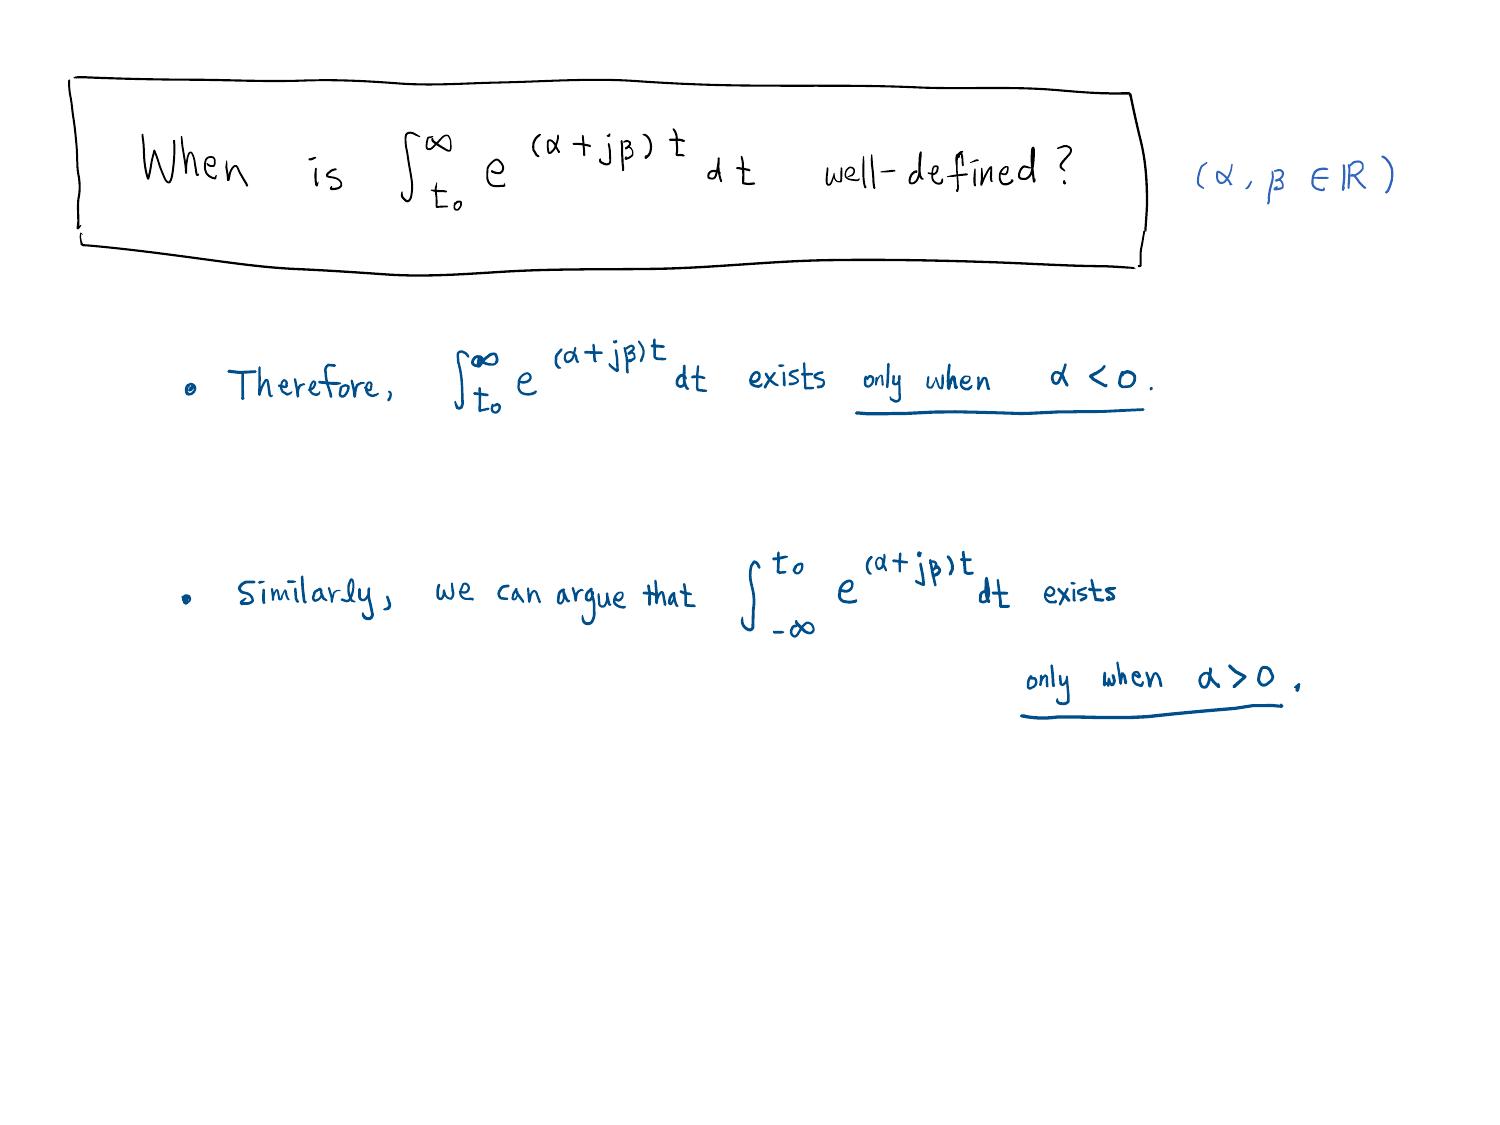 When is ∫_{t₀}^{∞} e^{(α+jβ)t} dt well-defined? (α, β ∈ ℝ)
• Therefore, ∫_{t₀}^{∞} e^{(α+jβ)t} dt exists only when α < 0.
• Similarly, we can argue that ∫_{-∞}^{t₀} e^{(α+jβ)t} dt exists
only when α > 0.